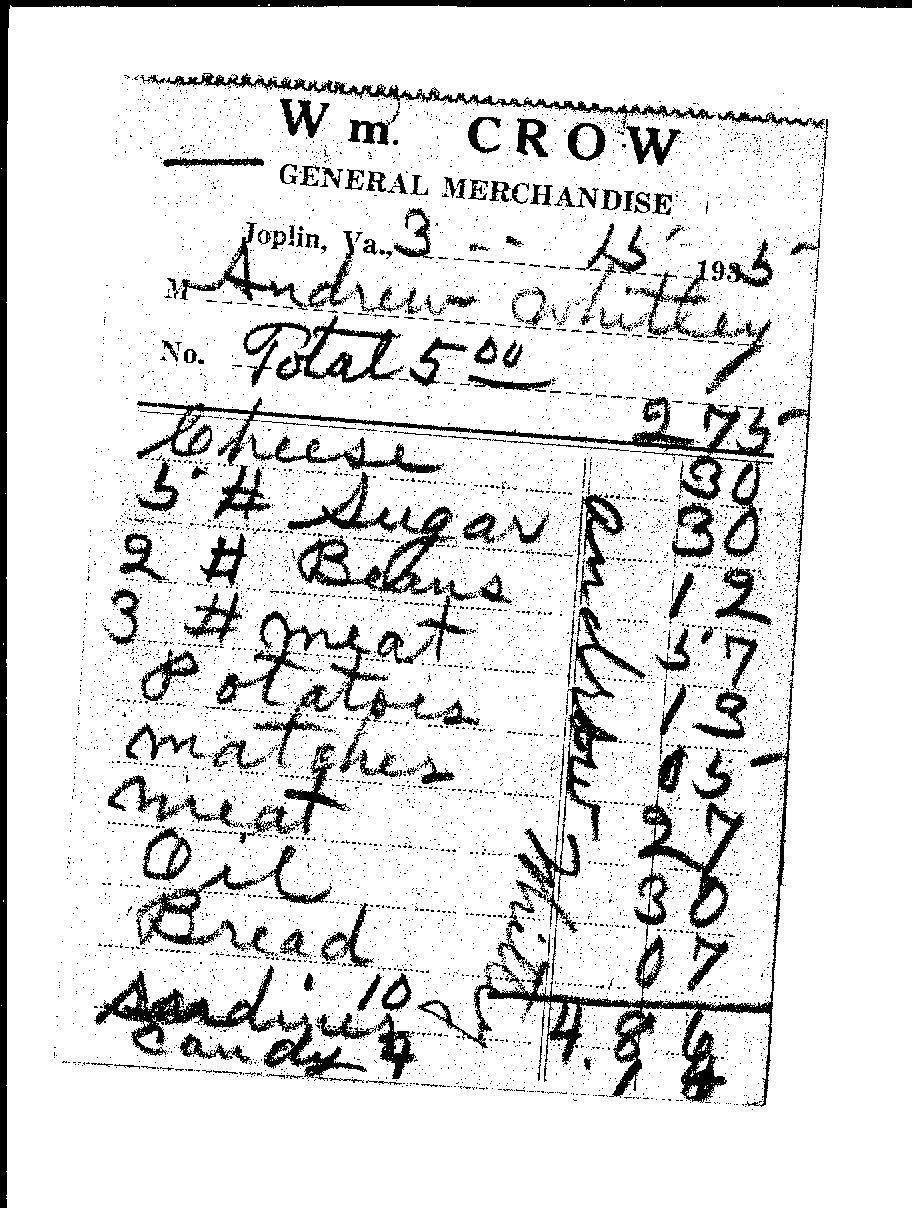 Wm. CROW
GENERAL MERCHANDISE
Joplin, Va., 3 -- 15 1935
M Andrew Whitley
No. Total 5 00
2 75
Cheese 30
5 # Sugar 30
2 # Beans 12
3 # meat 57
Potatoes 13
matches 05
meat 27
Oil 30
Bread 07
Sardines 10 4.86
Candy 4 1